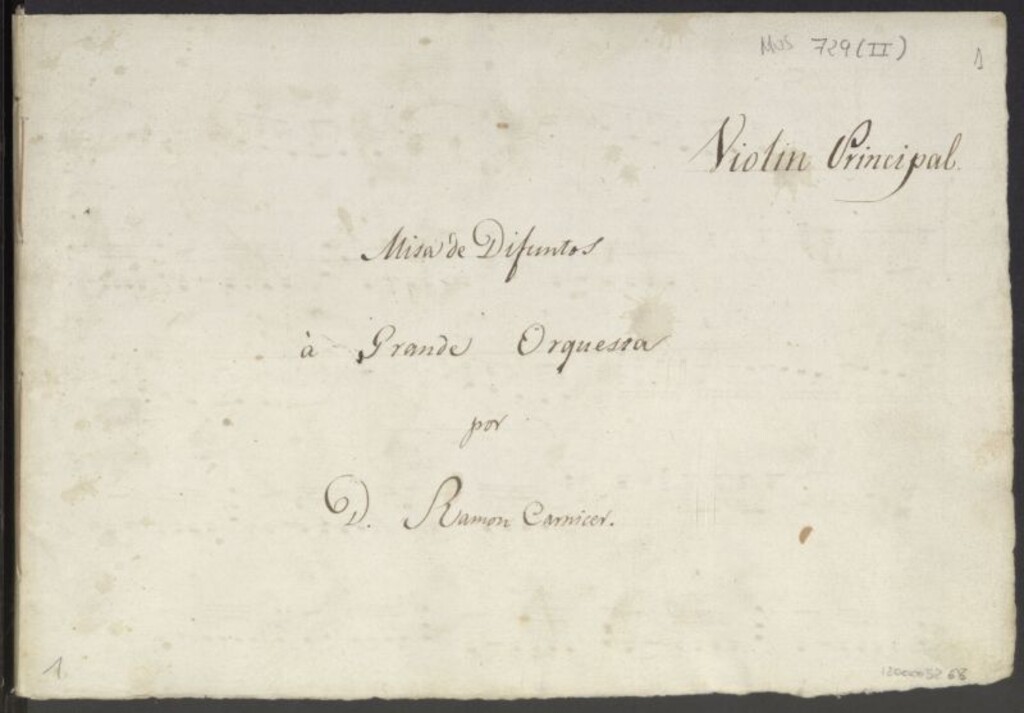 Mus 729 (II)
1
Violin Principal.
Misa de Difuntos
à Grande Orquesta
por
D. Ramon Carnicer.
1